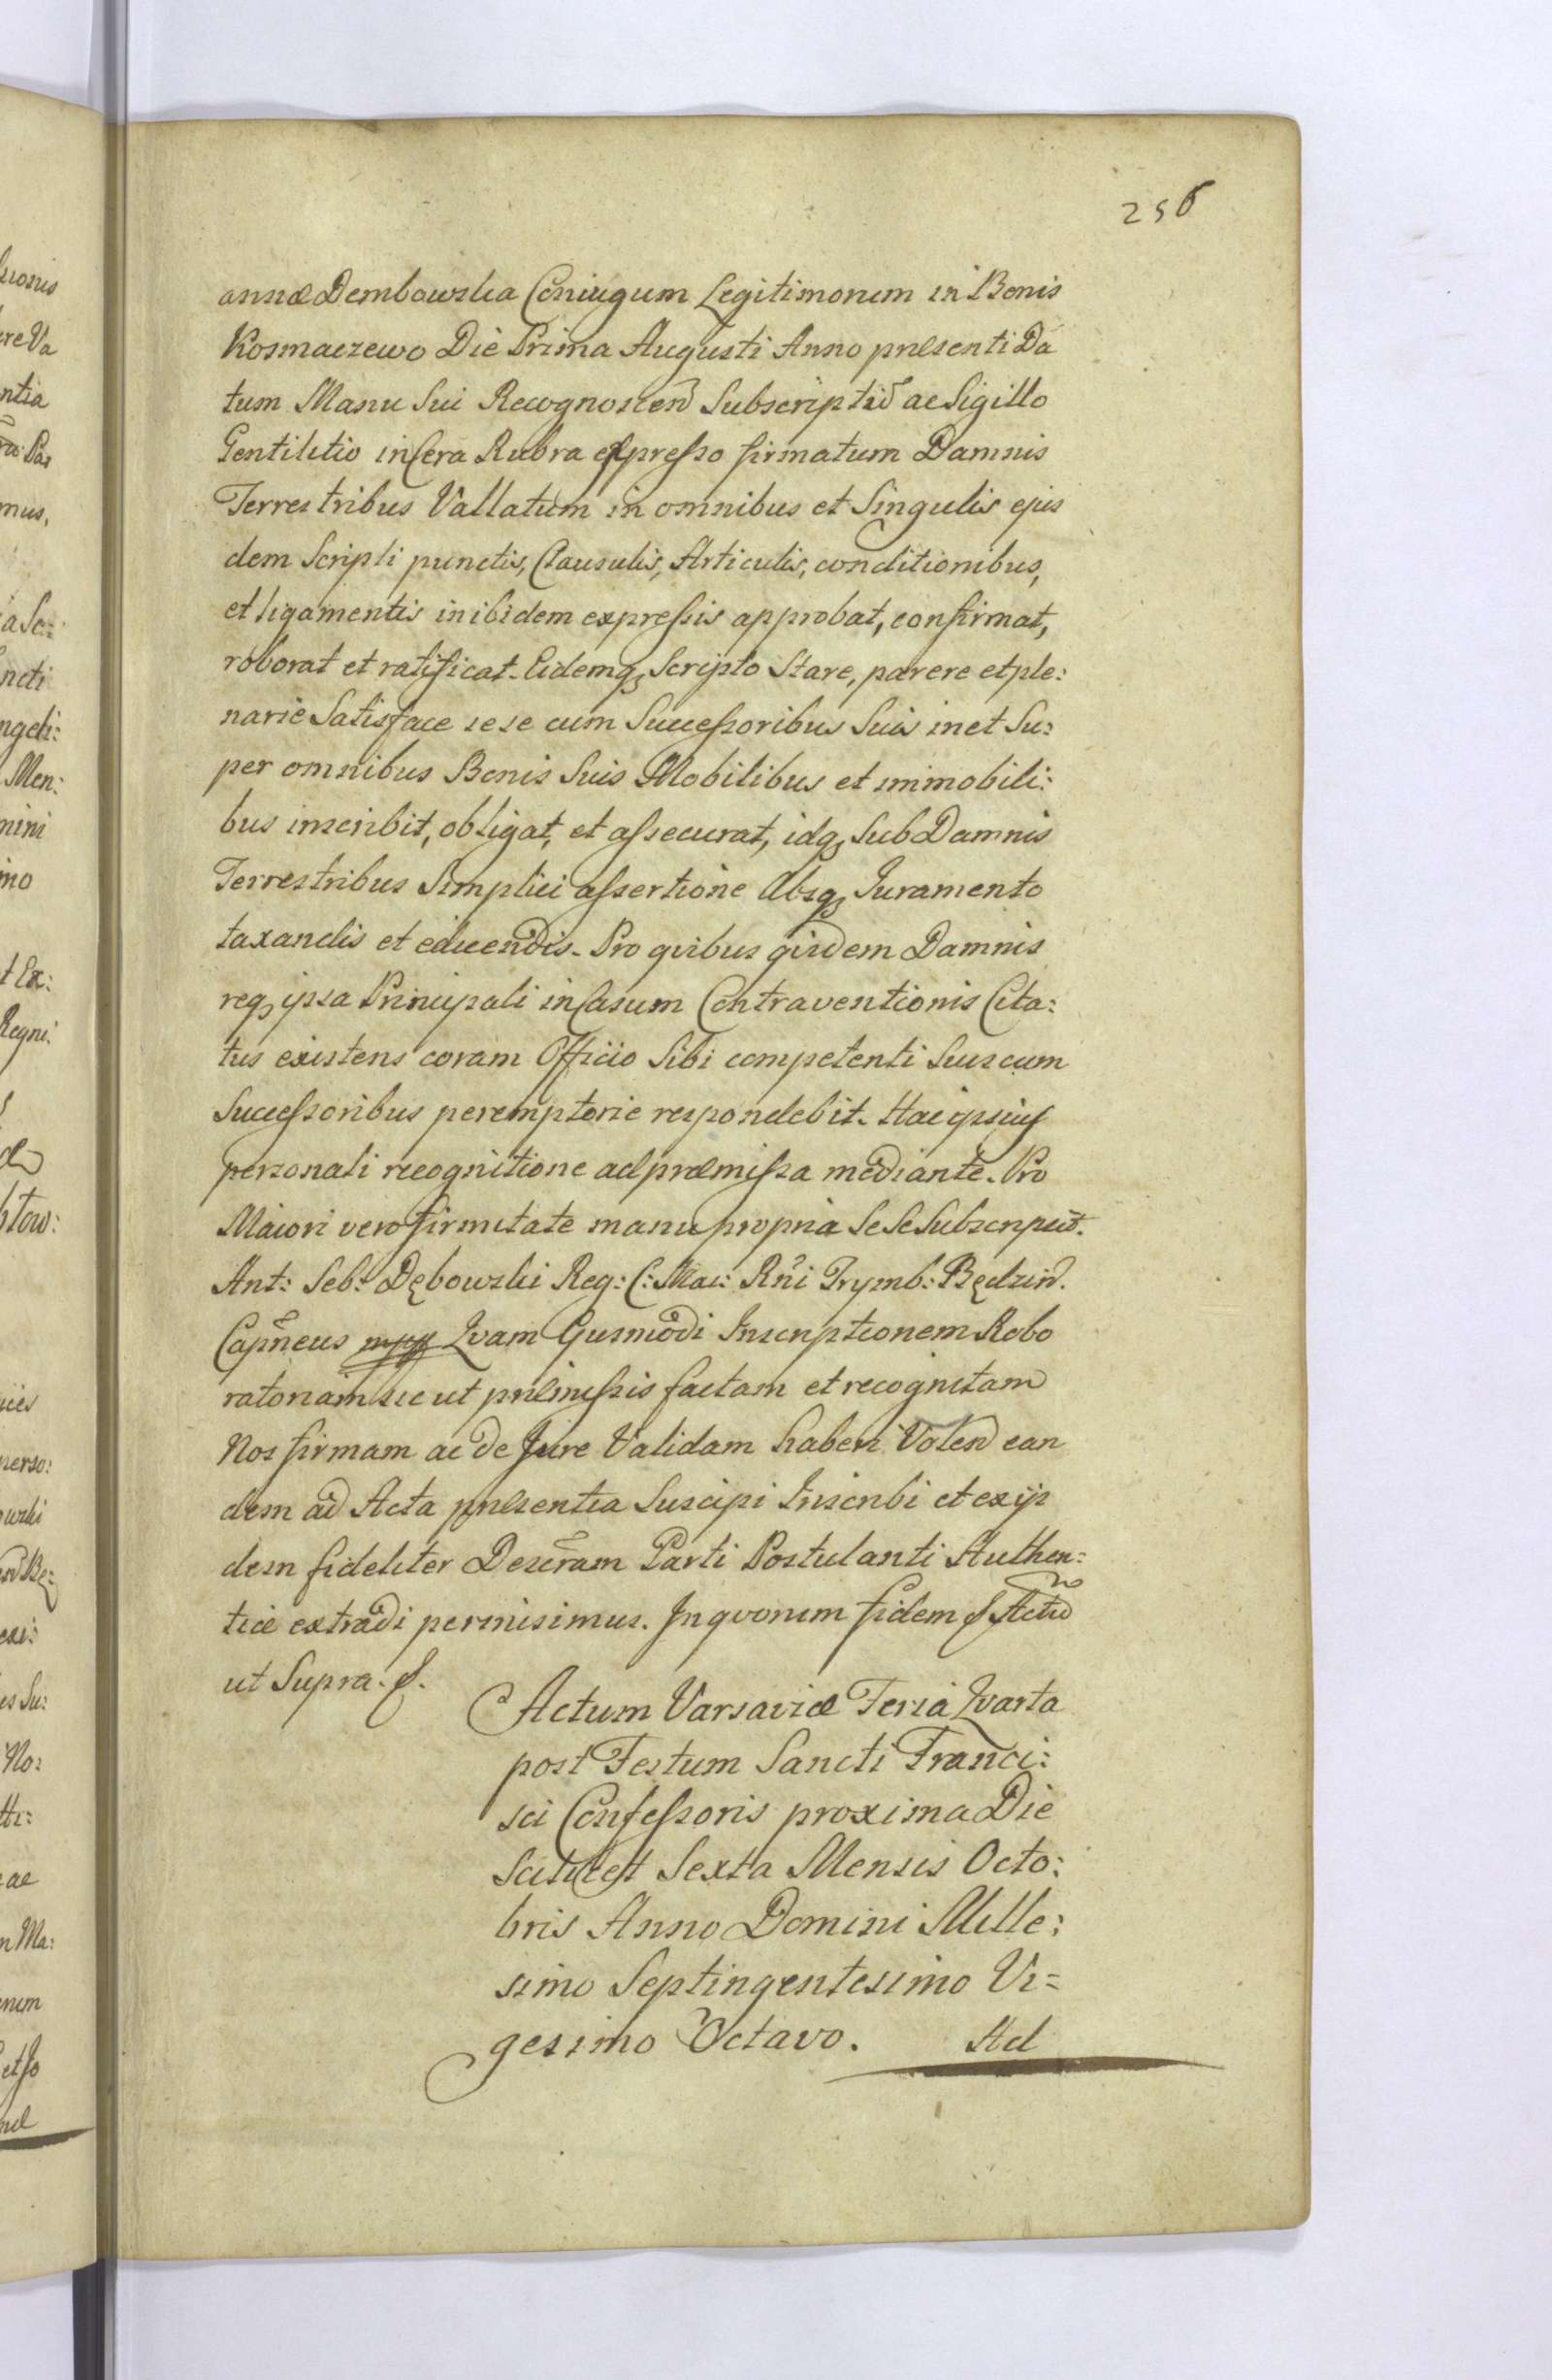 256
annæ Dembowska Coniugum Legitimorum in Bonis
Kosmaczewo Die Prima Augusti Anno pnlesenti Da
tum Manu Sui Recognoscen Subscriptũ ac Sigillo
Gentilitio in Cera Rubra expresso firmatum Damnis
Terrestribus Vallatum in omnibus et Singulis ejus
dem Scripti punctis, Clausulis, Articulis, conditionibus,
et ligamentis inibidem expressis approbat, confirmat,
roborat et ratificat. Eidemq; Scripto Stare, parere et ple:
narie Satisface sese cum Successoribus Suis in et Su:
per omnibus Bonis Suis Mobilibus et immobili:
bus inscribit, obligat, et assecurat, idq; Sub Damnis
Terrestribus Simplici assertione Absq; Juramento
taxandis et educendis. Pro quibus quidem Damnis
req; ipsa Principali in Casum Contraventionis Cita:
tus existens coram Officio Sibi competenti Suis cum
Successoribus peremptorie respondebit. Hac ipsius
personali recognitione ad præmissa mediante. Pro
Maiori vero firmitate manu propria Se Se Subscripsit.
Ant: Seb: Dębowski Reg: C: Mac: Rñi Trymb: Będzin.
Capñeus Qvam Gusmodi Inscriptionem Robo
ratoriam sic ut pnlemissis factam et recognitam
Nos firmam ac de Jure Validam haberi Volen ean
dem ad Acta pnlesentia Suscipi Inscribi et ex ijs
dem fideliter Descr̃am Parti Postulanti Authen:
tice extradi permisimus. In qvorum fidem &. Actũ
ut Supra. &.
Actum Varsaviæ Feria Qvarta
post Festum Sancti Franci:
sci Confessoris proxima Die
Scilicet Sexta Mensis Octo:
bris Anno Domini Mille:
simo Septingentesimo Vi=
gesimo Octavo. Ad